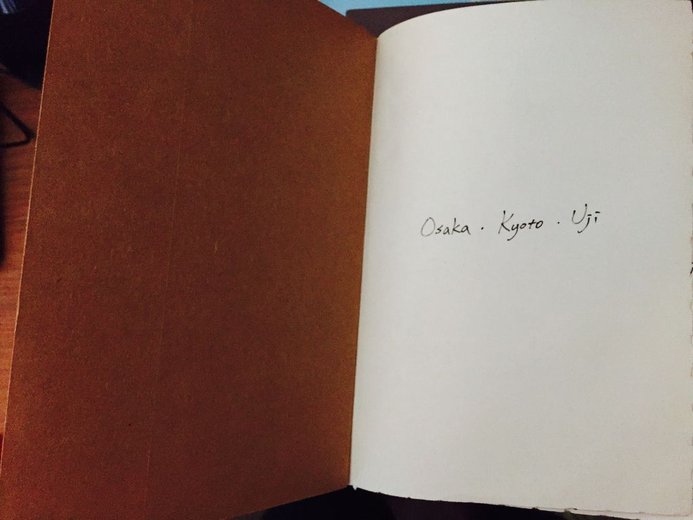 Osaka · Kyoto · Uji